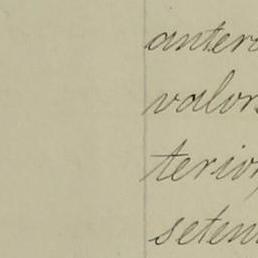 anter
valor
terior
seten